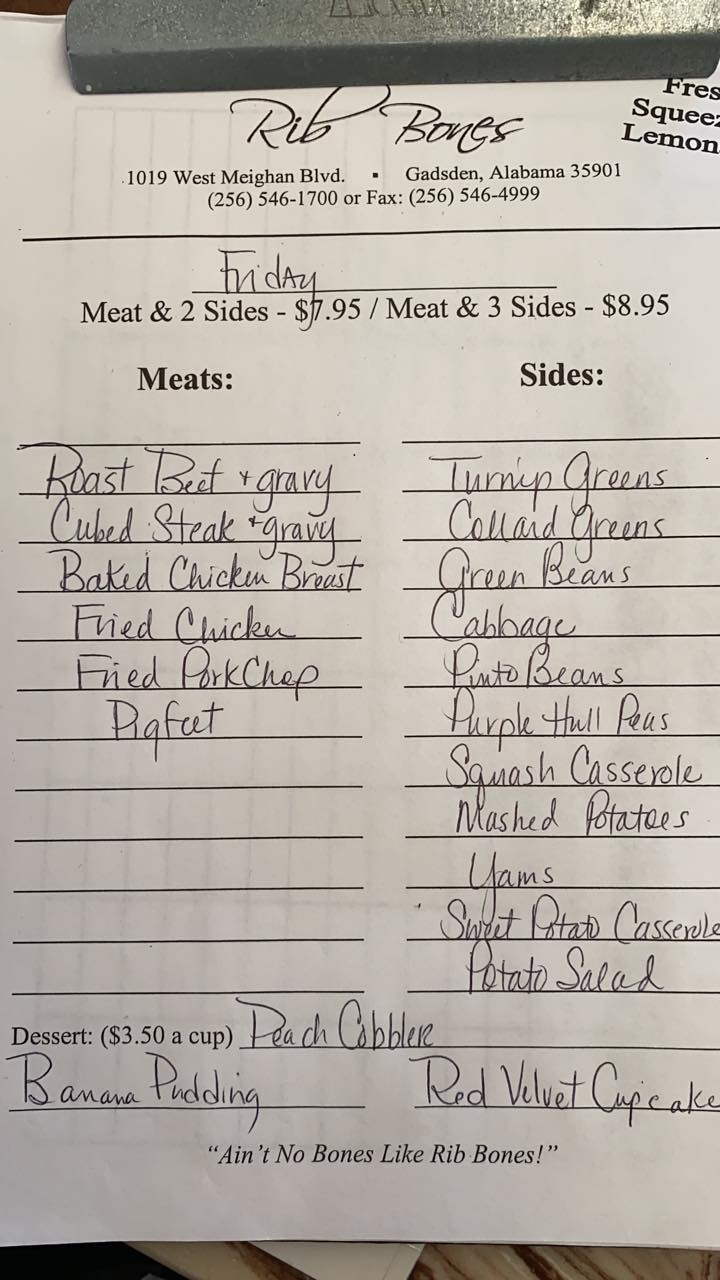 Rib Bones
Fres
Squeez
Lemon
1019 West Meighan Blvd. ▪ Gadsden, Alabama 35901
(256) 546-1700 or Fax: (256) 546-4999
Friday
Meat & 2 Sides - $7.95 / Meat & 3 Sides - $8.95
Meats:
Roast Beef + gravy
Cubed Steak + gravy
Baked Chicken Breast
Fried Chicken
Fried Pork Chop
Pigfeet
Sides:
Turnip Greens
Collard Greens
Green Beans
Cabbage
Pinto Beans
Purple Hull Peas
Squash Casserole
Mashed Potatoes
Yams
Sweet Potato Casserole
Potato Salad
Dessert: ($3.50 a cup) Peach Cobbler
Banana Pudding Red Velvet Cupcake
“Ain’t No Bones Like Rib Bones!”